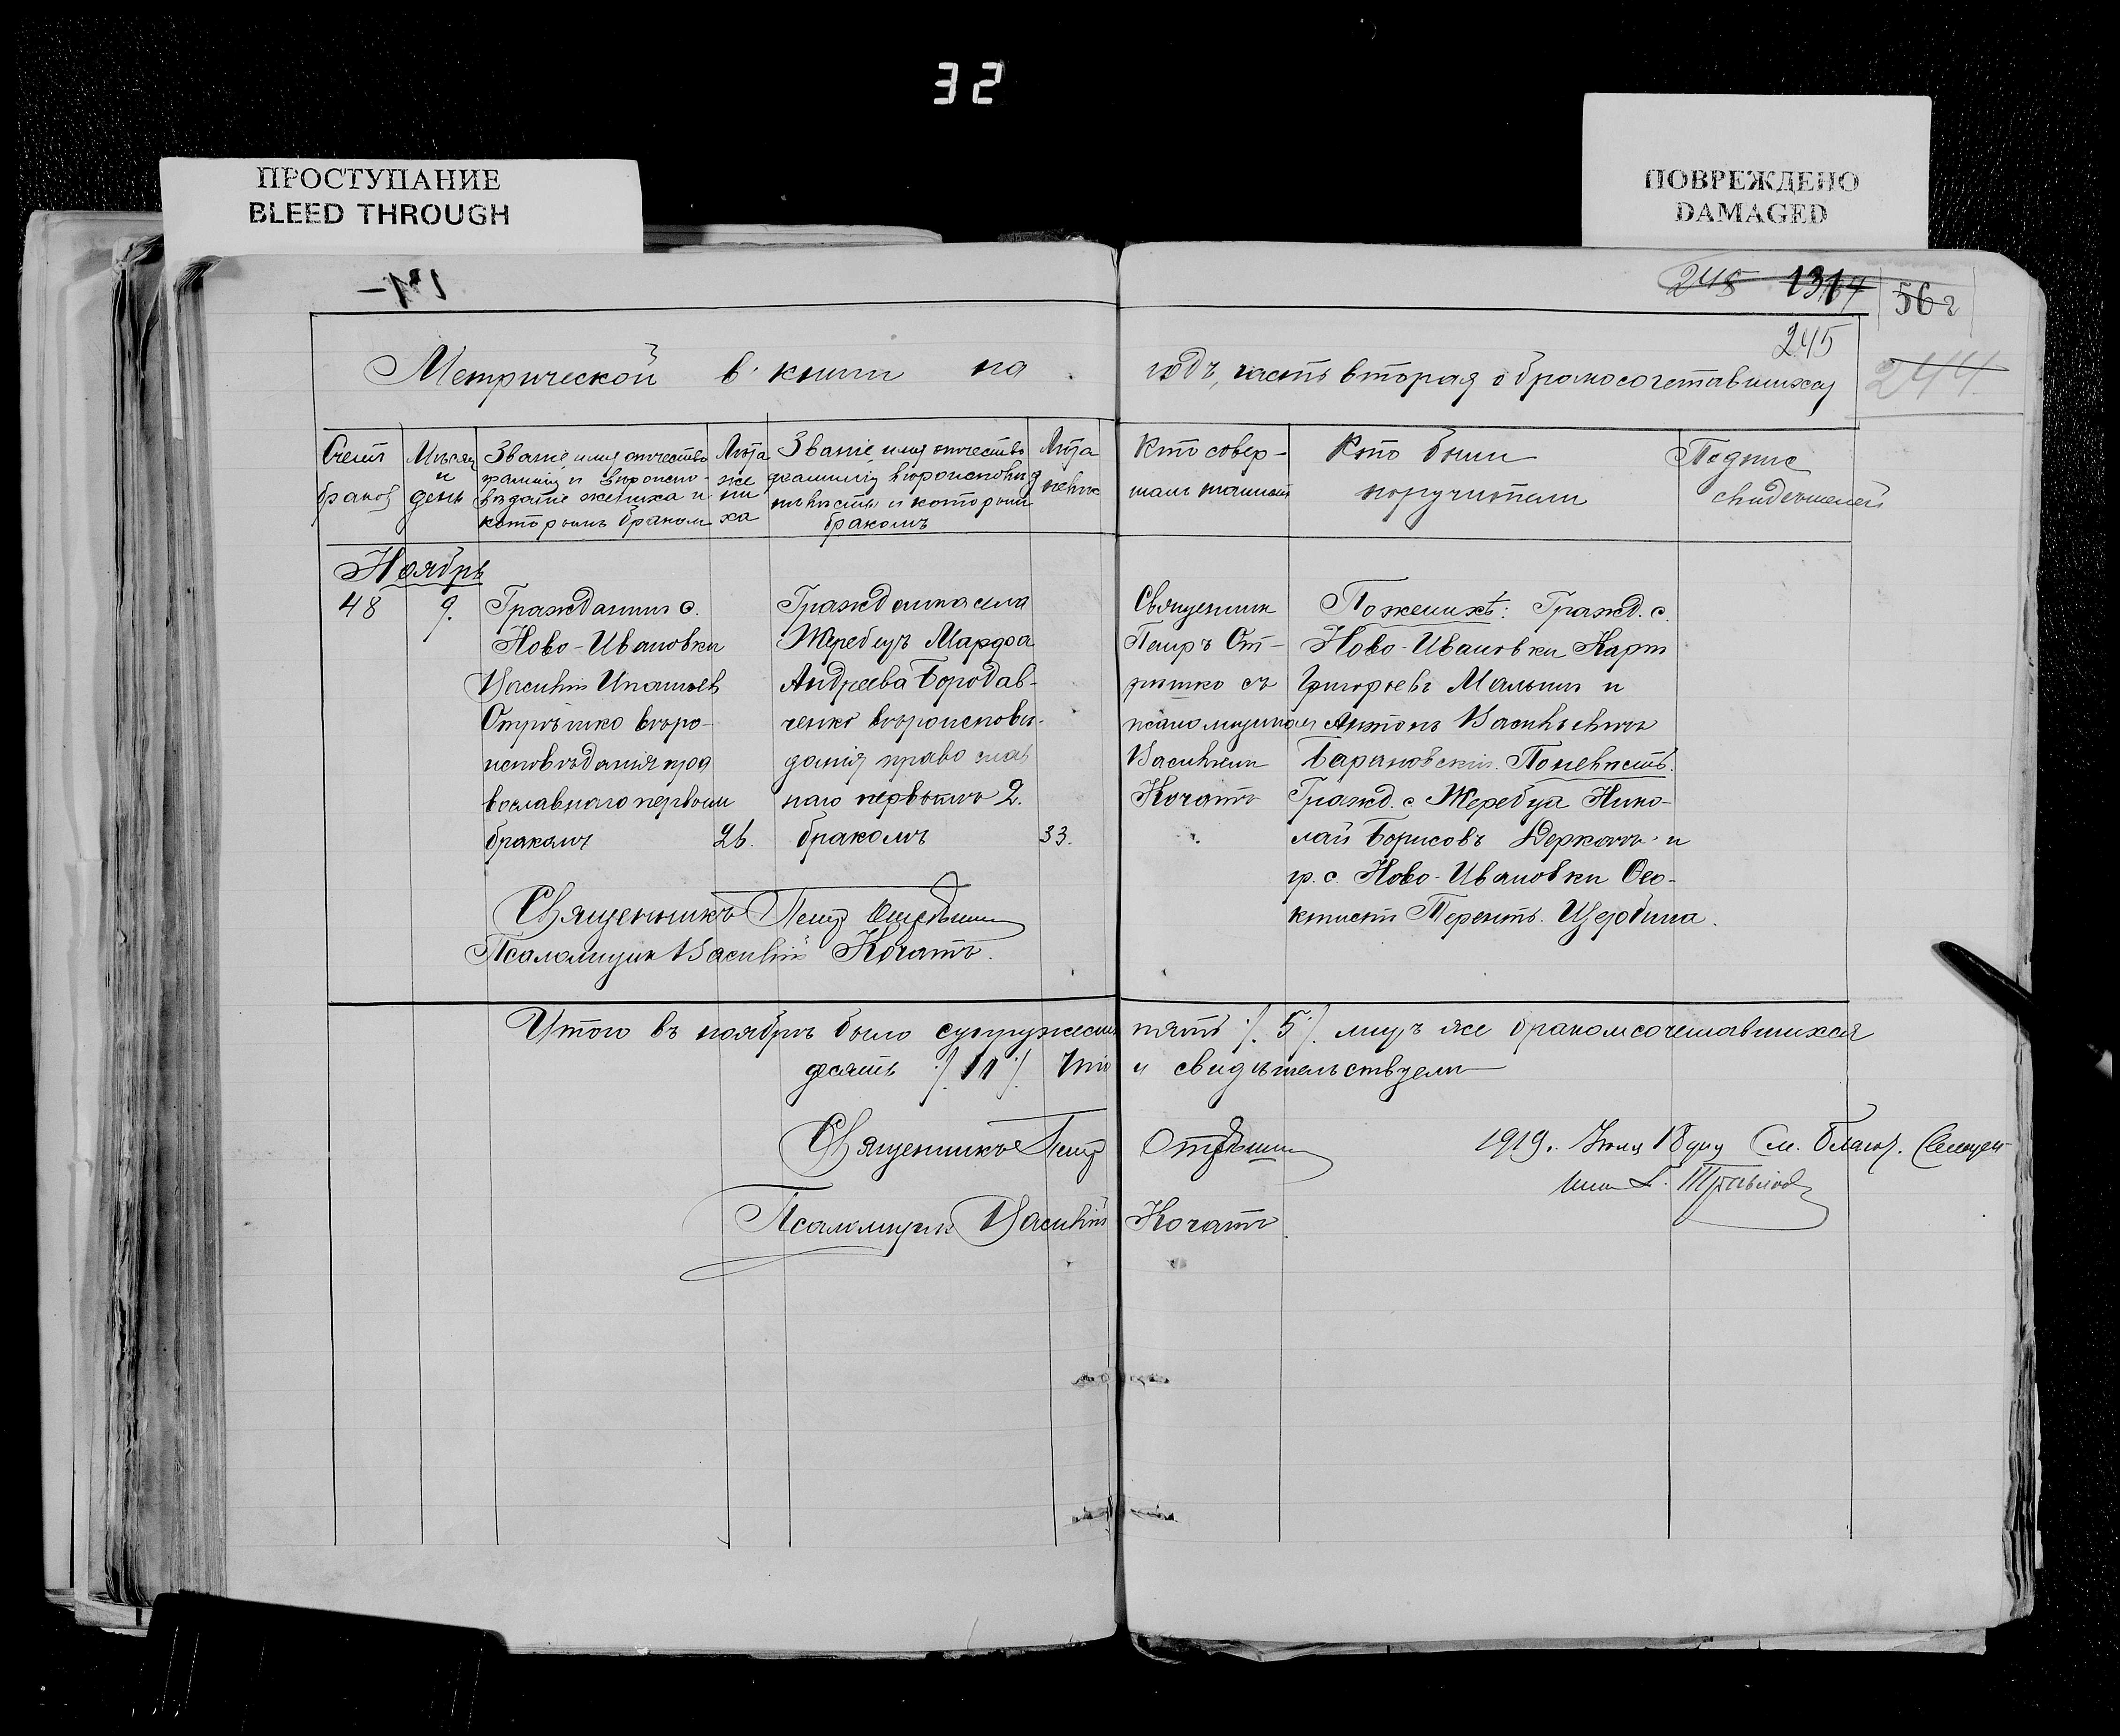 32
ПРОСТУПАНИЕ
BLEED THROUGH
ПОВРЕЖДЕНО
DAMAGED
245 1314 56г
245
244
Метрической в книги на годъ, часть вторая о бракосочетавшихся
Счетъ браков
Мѣсяц и день
Званіе, имя отчество
фамилія и вѣроиспо-
вѣданіе жениха и
которымъ браком
Лѣта
же
ни
ха
Званіе, имя отчество
фамилія вѣроисповѣд
невѣсты и которым
бракомъ
Лѣта
невѣс
Кто совер-
шалъ таинст
Кто были
поручители
Подпис
свидетелей
Ноябрь
48
9.
Гражданин с.
Ново-Ивановки
Василій Ипатьев
Отрѣшко вѣро-
исповѣданія пра
вославнаго первым
браком
26.
Гражданка села
Жеребцъ Марфа
Андреева Бородав-
ченко вѣроисповѣ-
данія православ
наго первымъ 2.
бракомъ
33.
Священник
Петръ От-
рѣшко съ
псаломщиком
Василием
Кочатъ
По женихѣ: Гражд. с.
Ново-Ивановки Карп
Григорьевъ Малыш и
Антонъ Васильевичъ
Барановскій. По невѣстѣ.
Гражд. с Жеребца Нико-
лай Борисовъ Деркачъ и
гр. с. Ново-Ивановки Фео-
ктист Терент. Щербина.
Священникъ Петр Отрѣшко
Псаломщик Василій Кочатъ.
Итого въ ноябрѣ было супружеств пять /. 5 /. лицъ же бракомсочетавшихся
десять /. 11 /. Что и свидѣтельствуем
Священникъ Петр Отрѣшко
Псаломщик Василій Кочатъ.
1919. Июля 18 дня См. Благоч. Священ-
ник